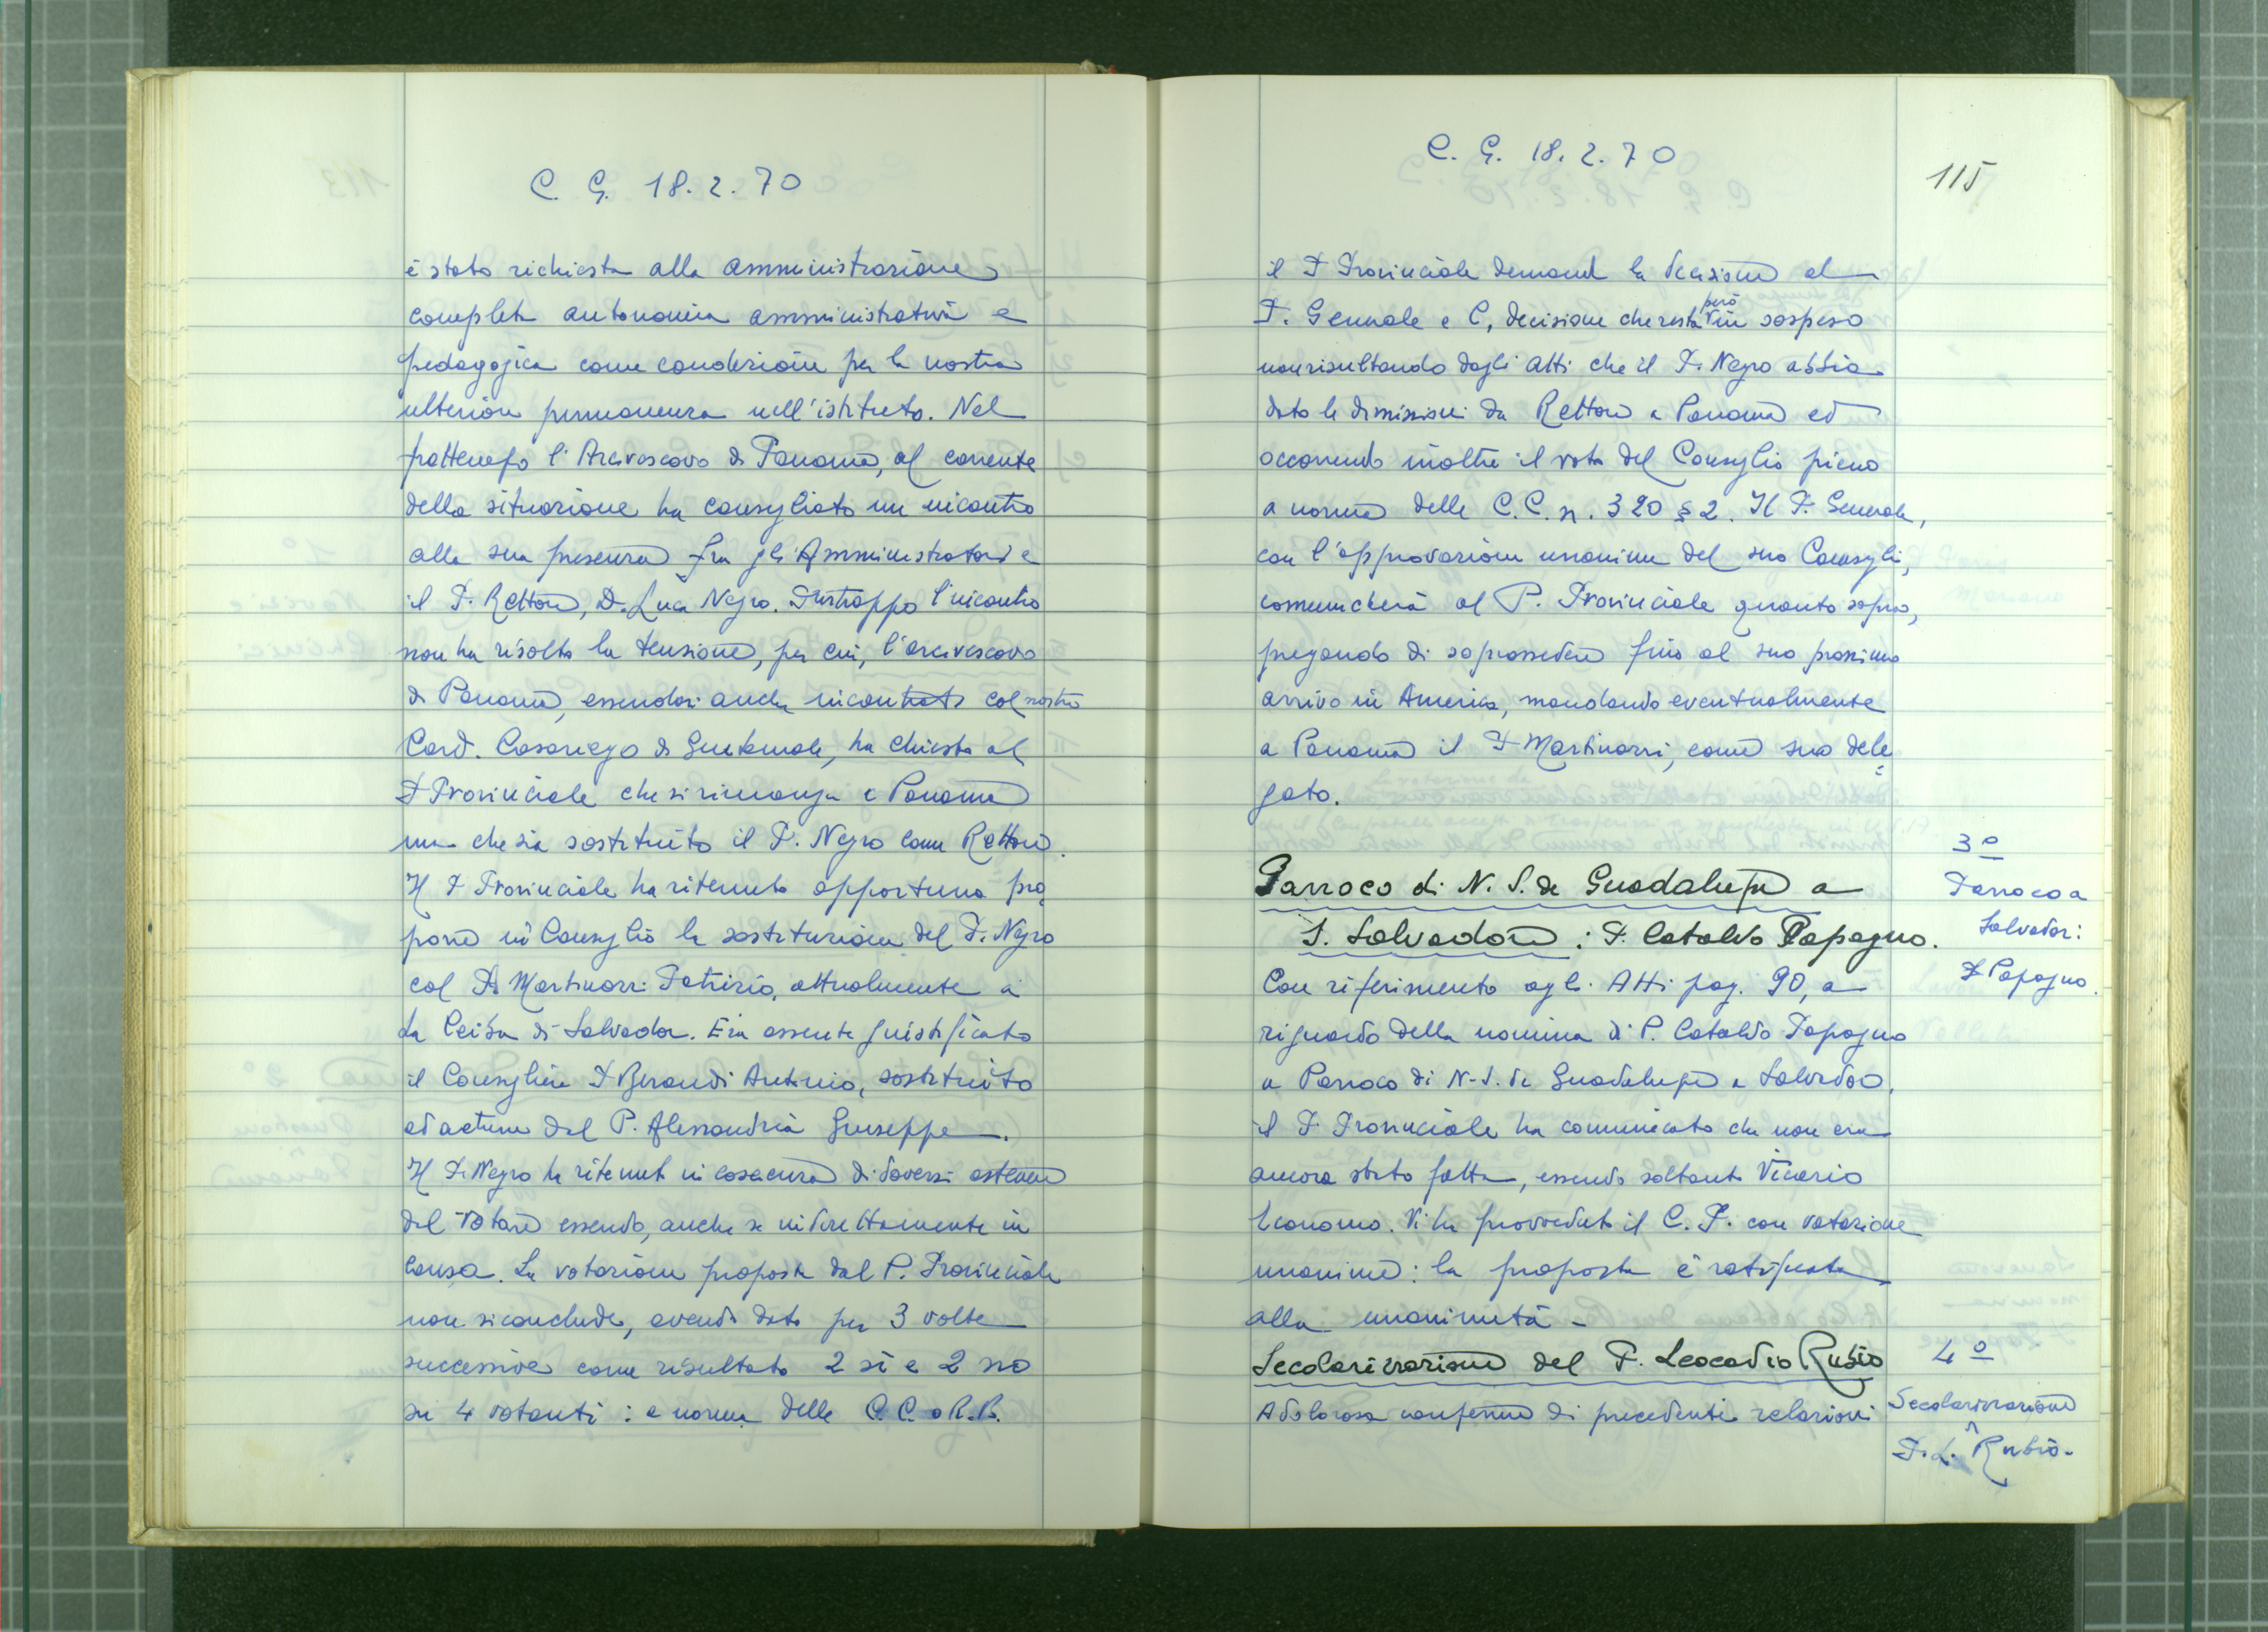 C. G. 18.2.70
è stato richiesta alla amministrazione
completa autonomia amministrativa e
pedagogica come condizione per la nostra
ulteriore permanenza nell'istituto. Nel
frattempo l'Arcivescovo di Panamà, al corrente
della situazione ha consigliato un incontro
alla sua presenza fra gli Amministratori e
il P. Rettore, D. Luca Negro. Purtroppo l'incontro
non ha risolto la tensione, per cui, l'arcivescovo
di Panamà, essendosi anche incontrato col nostro
Card. Casariego di Guatemala, ha chiesto al
P. Provinciale che si rimanga a Panamà
ma che sia sostituito il P. Negro come Rettore.
Il P. Provinciale ha ritenuto opportuno pro
porre in Consiglio la sostituzione del P. Negro
col P. Martinazzi Patrizio, attualmente a
La Ceiba di Salvador. Era assente giustificato
il Consigliere P. Beraudi Antonio, sostituito
ad actum dal P. Alessandria Giuseppe.
Il P. Negro ha ritenuto in coscienza di doversi astenere
dal votare essendo, anche se indirettamente in
causa. La votazione proposta dal P. Provinciale
non si conclude, avendo dato per 3 volte
successive come risultato 2 sì e 2 no
su 4 votanti: a norma delle C.C. o R.R.
C. G. 18.2.70
115
il P. Provinciale demanda la decisione al
P. Generale e C, decisione che resta però in sospeso
non risultando dagli Atti che il P. Negro abbia
dato le dimissioni da Rettore a Panamà ed
occorrendo inoltre il voto del Consiglio pieno
a norma delle C.C. n. 320 § 2. Il P. Generale,
con l'approvazione unanime del suo Consiglio,
comunicherà al P. Provinciale quanto sopra,
pregando di soprassedere fino al suo prossimo
arrivo in America, mandando eventualmente
a Panamà il P. Martinazzi, come suo dele=
gato.
Parroco di N. S. de Guadalupe a
S. Salvadore: P. Cataldo Papagno.
3º
Parroco a
Salvador:
P. Papagno.
Con riferimento agli Atti pag. 90, a
riguardo della nomina di P. Cataldo Papagno
a Parroco di N.S. de Guadalupe a Salvador,
il P. Provinciale ha comunicato che non era
ancora stata fatta, essendo soltanto Vicario
Economo. Vi ha provveduto il C. P. con votazione
unanime: la proposta è ratificata
alla unanimità -
Secolarizzazione del P. Leocadio Rubio
4º
Secolarizzazione
P. L. Rubio.
A dolorosa conferma di precedenti relazioni